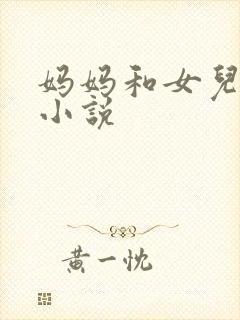 妈妈和女兒
小説
黄一忱